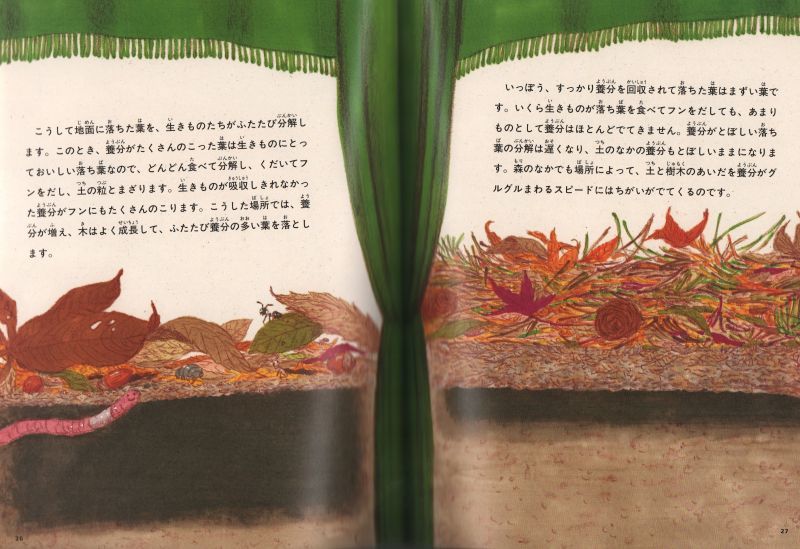 こうして地面に落ちた葉を、生きものたちがふたたび分解し
ます。このとき、養分がたくさんのこった葉は生きものにとっ
ておいしい落ち葉なので、どんどん食べて分解し、くだいてフ
ンをだし、土の粒とまざります。生きものが吸収しきれなかっ
た養分がフンにもたくさんのこります。こうした場所では、養
分が増え、木はよく成長して、ふたたび養分の多い葉を落とし
ます。
26
いっぽう、すっかり養分を回収されて落ちた葉はまずい葉で
す。いくら生きものが落ち葉を食べてフンをだしても、あまり
ものとして養分はほとんどでてきません。養分がとぼしい落ち
葉の分解は遅くなり、土のなかの養分もとぼしいままになりま
す。森のなかでも場所によって、土と樹木のあいだを養分が
グルグルまわるスピードにはちがいがでてくるのです。
27